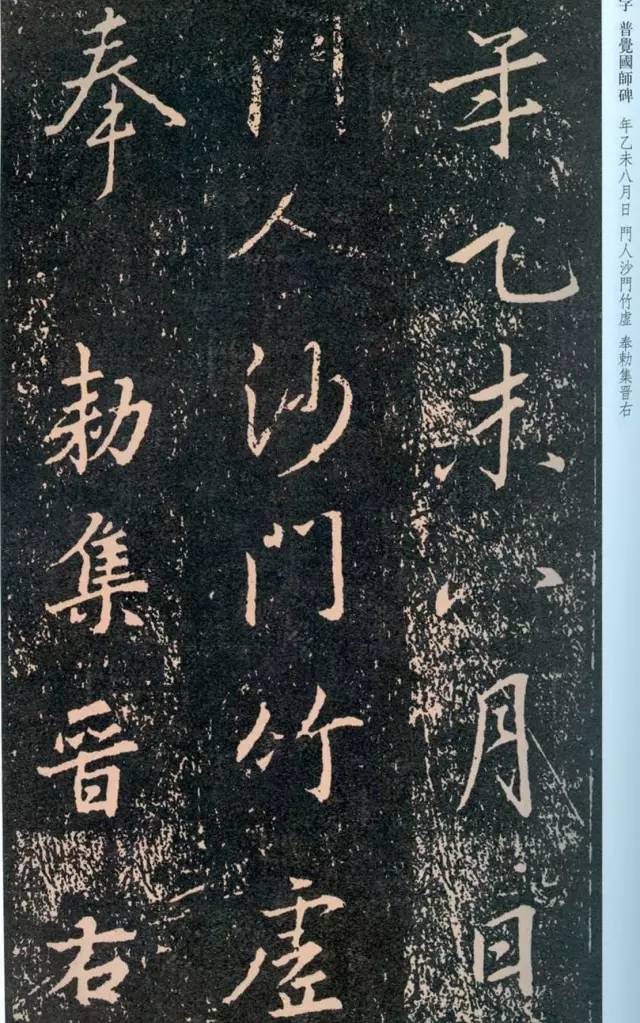 年乙未八月日
門人沙門竹虛
奉 勅集晉右
字 普覺國師碑 年乙未八月日 門人沙門竹虛 奉勅集晉右